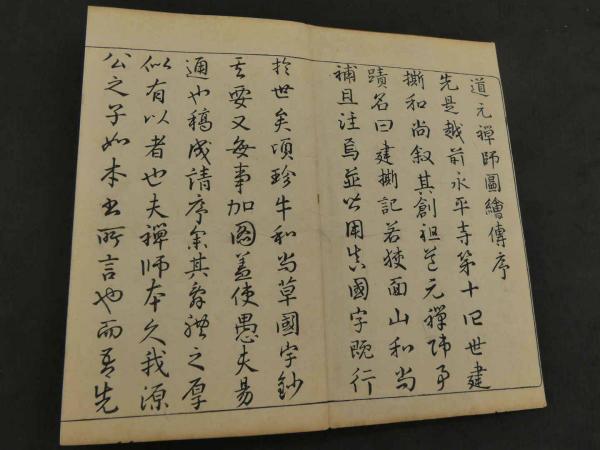 道元禪師圖繪傳序
先是越前永平寺第十四世建
撕和尚叙其創祖道元禪師事
蹟名曰建撕記若狹面山和尚
補且注焉並以國字既行
於世矣頃珍牛和尚草國字鈔
其要又每事加圖蓋使愚夫易
通也稿成請序余其辭禮之厚
似有以者也夫禪師本久我源
公之子如本書所言也而吾先